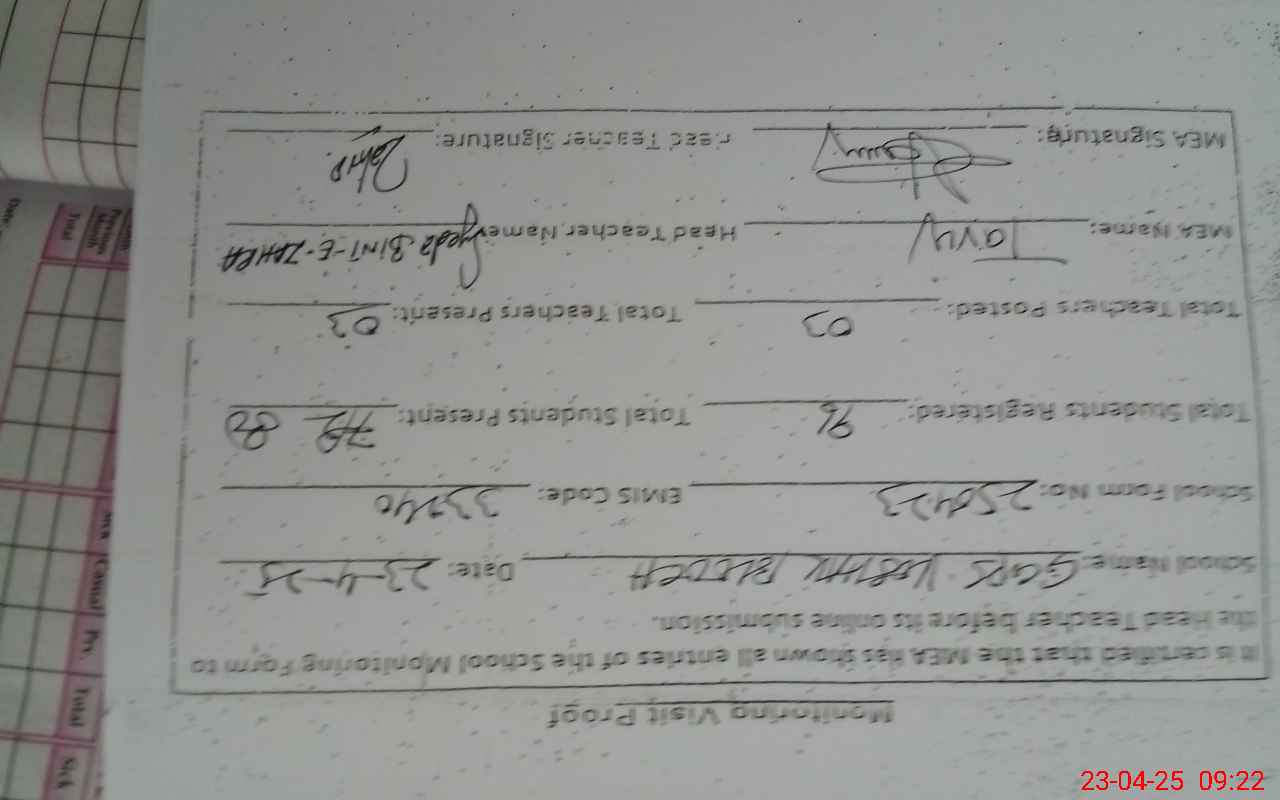 Monitoring Visit Proof
It is certified that the MEA has shown all entries of the School Monitoring Form to
the Head Teacher before its online submission.
School Name: GGPS BLOUCH Date: 23-4-25
School Form No: 250423 EMIS Code: 33740
Total Students Registered: 96 Total Students Present: 80
Total Teachers Posted: 03 Total Teachers Present: 03
MEA Name: Head Teacher Name: Syeda BINT-E-ZAHRA
MEA Signature: Head Teacher Signature:
Sick
Total
Prv.
Casual
Total
Previous Month
Date
23-04-25 09:22